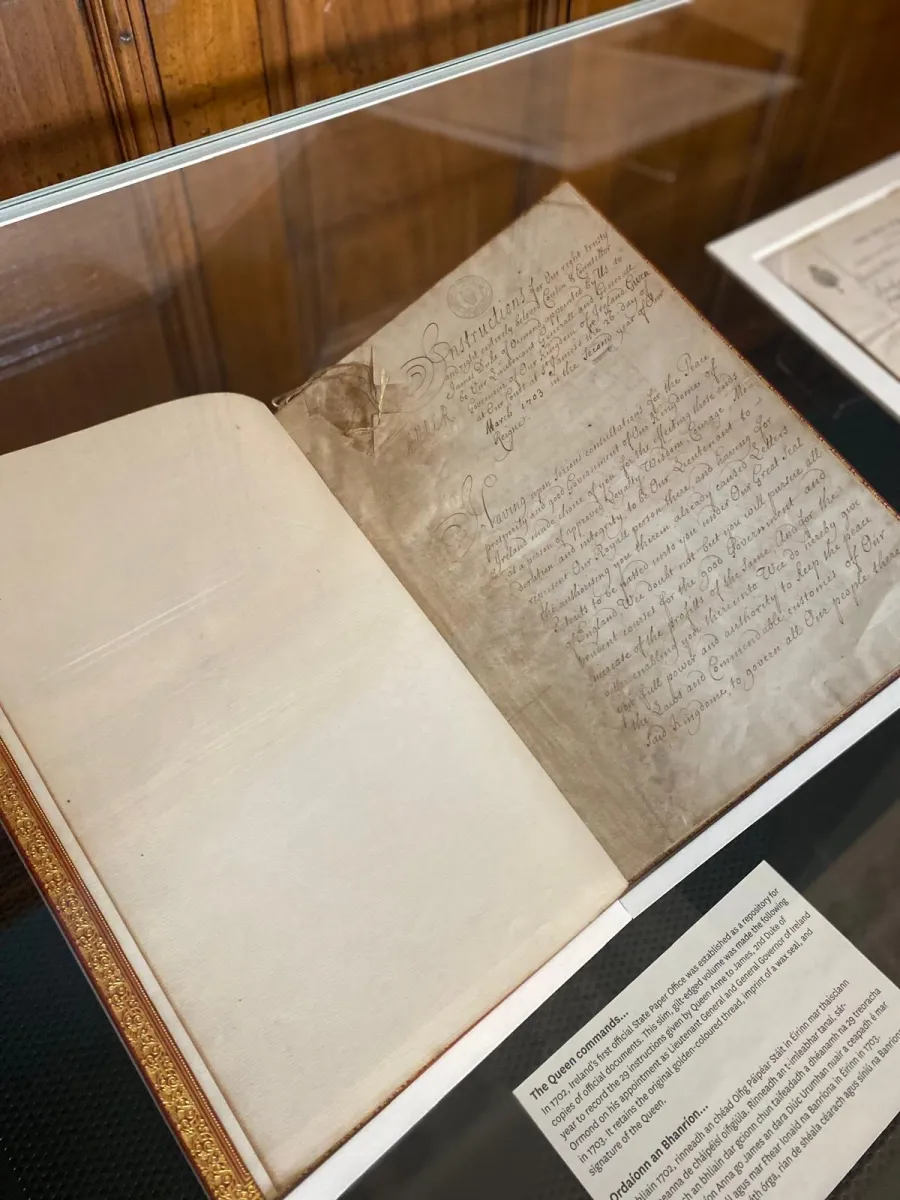 Instructions for Our right trusty
and right entirely beloved Cousin & Councellor
James Duke of Ormond appointed by Us to
be Our Lieutenant Generall and Generall
Governour of Our Kingdom of Ireland Given
at Our Court at St James's the 26 day of
March 1703 in the Second year of Our
Reigne.
Having upon serious consultations for the Peace
prosperity and good Government of Our Kingdome of
Ireland made choice of you for the
as a person of approved Loyalty Wisdom, Courage, Mo-
deration and integrity to be Our Lieutenant to
represent Our Royall person there, and having for
the authorizing you therein already caused Letters
Patents to be passed unto you under Our Great Seal
England We doubt not but you will pursue all
prudent courses for the good Government and
increase of the profitts of the same. And for the
enabling you thereunto Wee do hereby give
you full power and authority to keep the peace
the Laws and Commendable customes of Our
said Kingdome, to govern all Our people there
The Queen commands...
In 1702, Ireland's first official State Paper Office was established as a repository for
copies of official documents. This slim, gilt-edged volume was made the following
year to record the 29 instructions given by Queen Anne to James, 2nd Duke of
Ormond on his appointment as Lieutenant General and General Governor of Ireland
in 1703. It retains the original golden-coloured thread, imprint of a wax seal, and
signature of the Queen.
Ordaíonn an Bhanríon...
bhliain 1702, rinneadh an chéad Oifig Páipéar Stáit in Éirinn mar thaisclann
de cháipéisí oifigiúla. Rinneadh an t-imleabhar tanaí, sár-
an bhliain dar gcionn chun taifeadadh a dhéanamh na 29 treoracha
Anna go James an dara Diúc Urumhan nuair a ceapadh é mar
agus mar Fhear Ionaid na Banríona in Éirinn in 1703.
órga, rian de shéala céarach agus síniú na Banríon